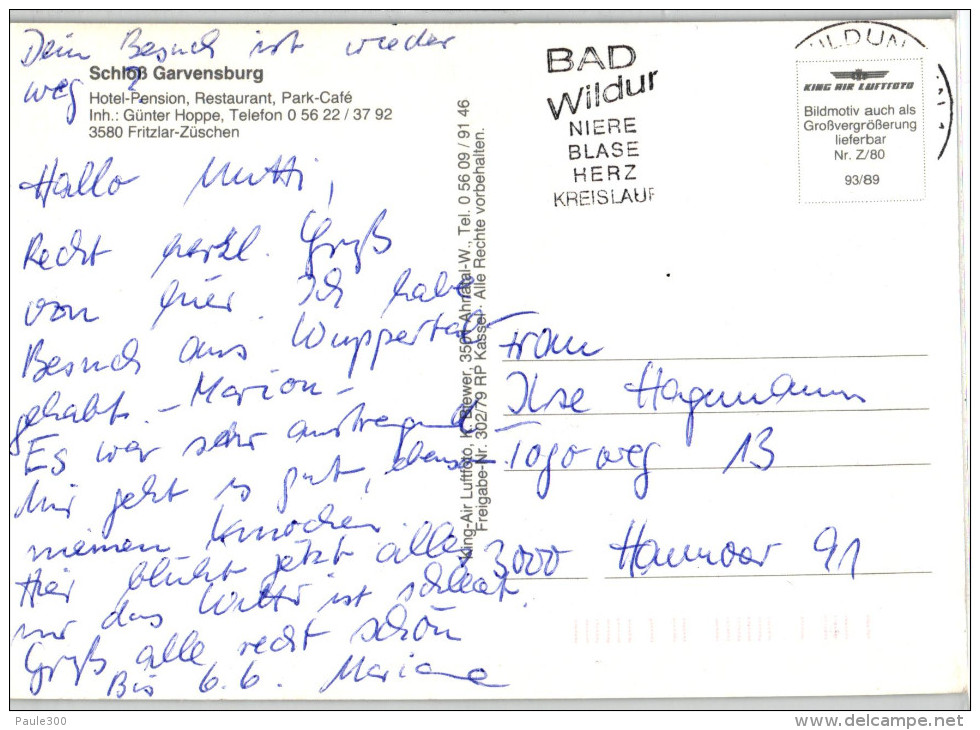 Dein Besuch ist wieder
weg ?
Schloß Garvensburg
Hotel-Pension, Restaurant, Park-Café
Inh.: Günter Hoppe, Telefon 0 56 22 / 37 92
3580 Fritzlar-Züschen
Hallo Mutti,
Recht herzl. Grüß
von hier. Ich habe
Besuch aus Wuppertal
gehabt. - Marion -
Es war sehr anstregend
Mir geht es gut, ebenso
meinen Knochen.
Hier blüht jetzt alles
nur das Wetter ist schlecht.
Grüß alle recht schön
Bis 6.6. Mariane
King-Air Luftfoto, K. Brewer, 3501 Ahnatal-W., Tel. 0 56 09 / 91 46
Freigabe-Nr. 302/79 RP Kassel · Alle Rechte vorbehalten.
BAD
Wildun
NIERE
BLASE
HERZ
KREISLAUF
KING AIR LUFTFOTO
Bildmotiv auch als
Großvergrößerung
lieferbar
Nr. Z/80
93/89
Frau
Ilse Hagemann
Togoweg 13
3000 Hannover 91
Paule300
www.delcampe.net